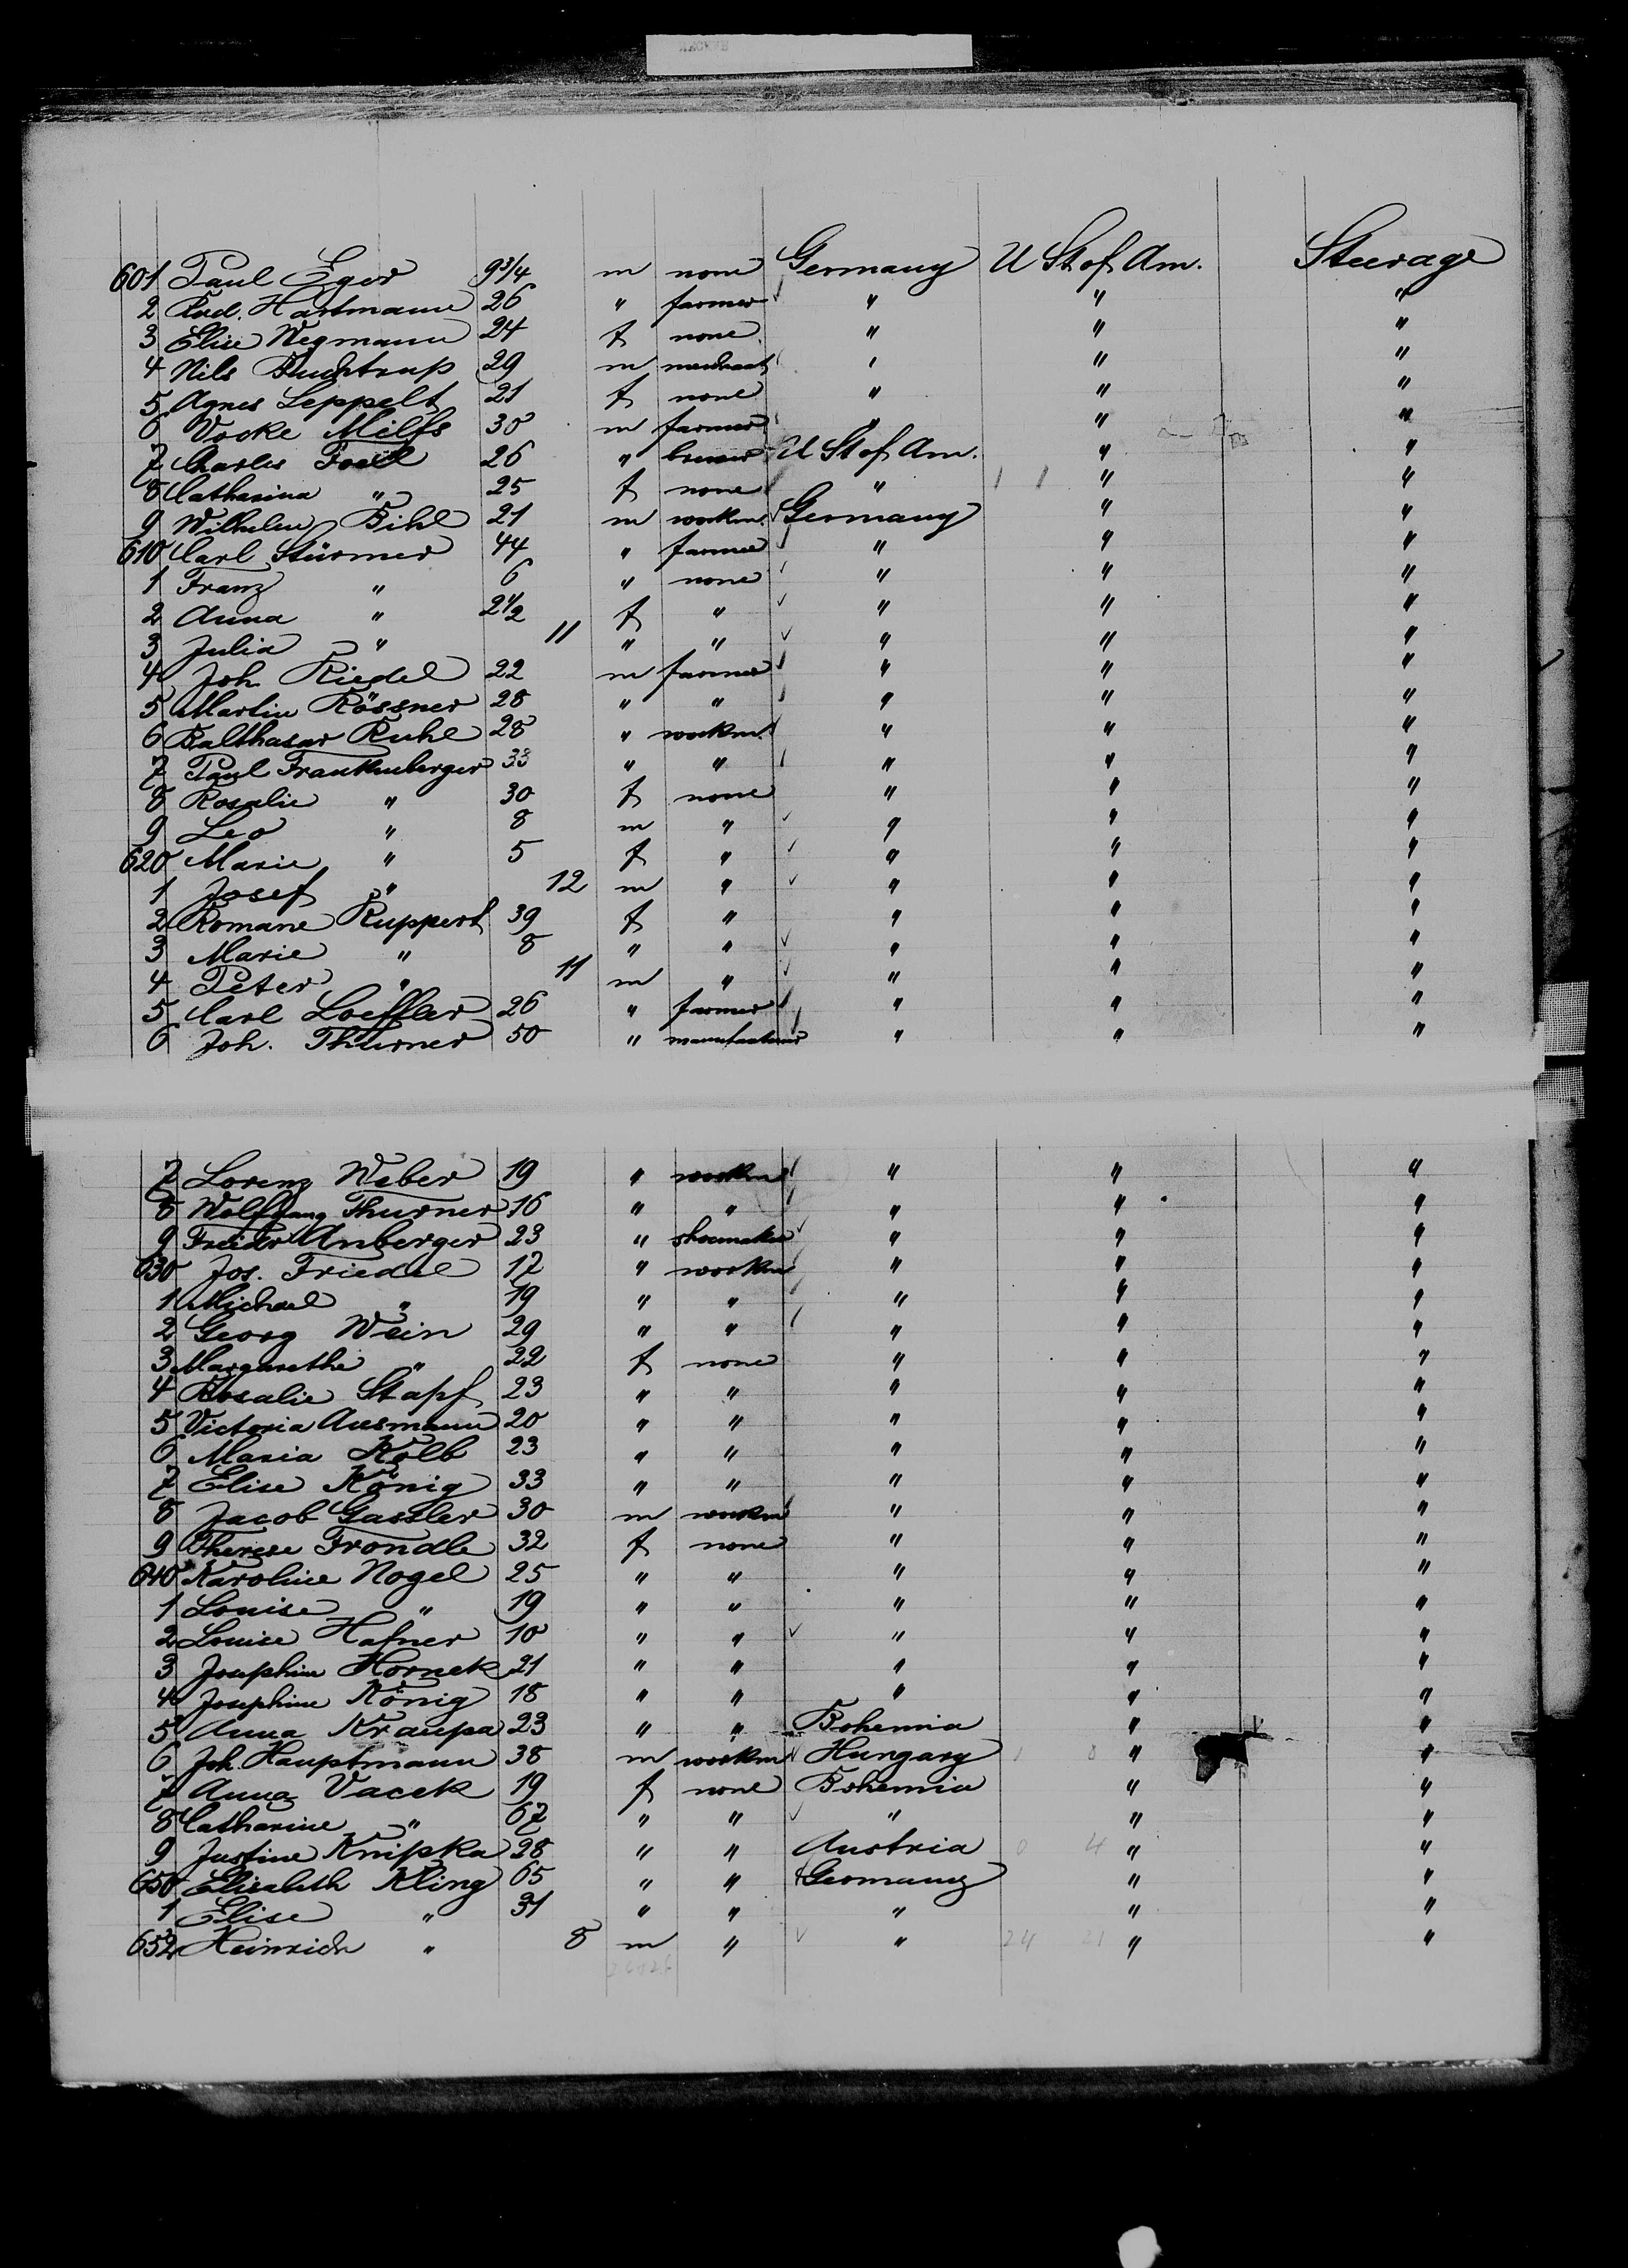 601 Paul Eger 9 3/4 m none Germany U St of Am. Steerage
2 Rud. Hartmann 26 " farmer " " "
3 Elise Wegmann 24 f none " " "
4 Nils 29 m merchant " " "
5 Agnes Leppelt 21 f none " " "
6 Vocke Milfs 30 m farmer " " "
7 Charles 26 " brewer U St of Am. " "
8 Catharina " 25 f none " 1 1 " "
9 Wilhelm Bihl 21 m workm. Germany " "
610 Carl Stürmer 44 " farmer " " "
1 Franz " 6 " none " " "
2 Anna " 2 1/2 f " " " "
3 Julia " 11 " " " " "
4 Joh. Riedel 22 m farmer " " "
5 Martin Rössner 28 " " " " "
6 Balthasar Ruhl 28 " workm. " " "
7 Paul Frankenberger 33 " " " " "
8 Rosalie " 30 f none " " "
9 Leo " 8 m " " " "
620 Marie " 5 f " " " "
1 Josef " 12 m " " " "
2 Romane Ruppert 39 f " " " "
3 Marie " 8 " " " " "
4 Peter " 11 m " " " "
5 Carl Loeffler 26 " farmer " " "
6 Joh. Thurner 50 " manufacturer " " "
7 Lorenz Weber 19 " workm " " "
8 Wolfgang Thurner 16 " " " " "
9 Friedr Anberger 23 " shoemaker " " "
630 Jos. Friedel 17 " workm " " "
1 Michael " 19 " " " " "
2 Georg Wein 29 " " " " "
3 Margarethe " 22 f none " " "
4 Rosalie Stapf 23 " " " " "
5 Victoria Ausmann 20 " " " " "
6 Maria Kolb 23 " " " " "
7 Elise König 33 " " " " "
8 Jacob Gassler 30 m workm " " "
9 Therese Frondle 32 f none " " "
640 Karoline Nogel 25 " " " " "
1 Louise " 19 " " " " "
2 Louise Hafner 10 " " " " "
3 Josephine Hornek 21 " " " " "
4 Josephine König 18 " " " " "
5 Anna Kraupa 23 " " Bohemia " "
6 Joh. Hauptmann 38 m workm Hungary 1 8 " "
7 Anna Vacek 19 f none Bohemia " "
8 Catharine " 67 " " " " "
9 Justine Knipka 28 " " Austria 0 4 " "
650 Elisabeth Kling 65 " " Germany " "
1 Elise " 31 " " " " "
652 Heinrich " 8 m " " 24 21 " "